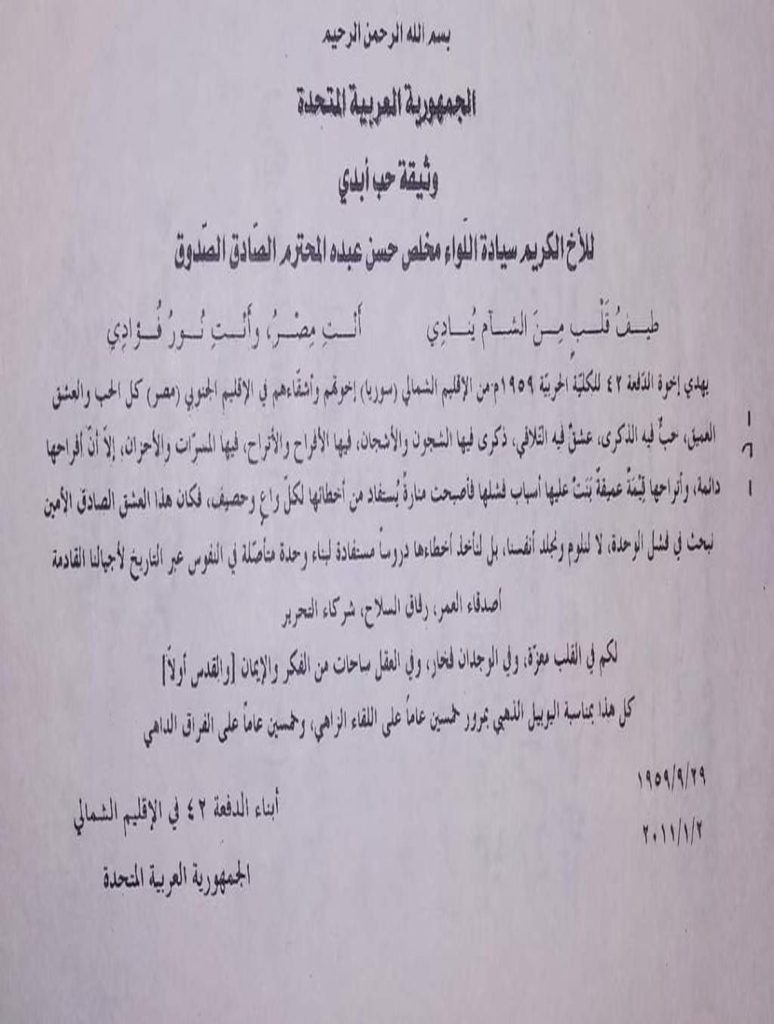 بسم الله الرحمن الرحيم
الجمهورية العربية المتحدة
وثيقة حب أبدي
للأخ الكريم سيادة اللّواء مخلص حسن عبده المحترم الصّادق الصّدوق
طيفُ قَلْبٍ مِنَ الشآم يُنادِي أَنْتِ مِصْرُ، وأَنْتِ نُورُ فُؤادِي
يهدي إخوة الدّفعة ٤٢ للكليّة الحربيّة ١٩٥٩م من الإقليم الشمالي (سوريا) إخوتهم وأشقّاءهم في الإقليم الجنوبي (مصر) كل الحب والعشق
العميق، حبٌّ فيه الذكرى، عشقٌ فيه التلاقي، ذكرى فيها الشجون والأشجان، فيها الأفراح والأتراح، فيها المسرّات والأحزان، إلاّ أنّ أفراحها
دائمة، وأتراحها قيّمةٌ عميقةٌ بَنَتْ عليها أسباب فشلها فأصبحت منارةً يُستفاد من أخطائها لكلّ واعٍ وحصيف، فكان هذا العشق الصادق الأمين
نبحث في فشل الوحدة، لا لنلوم ونجلد أنفسنا، بل لنأخذ أخطاءها دروساً مستفادة لبناء وحدة متأصّلة في النفوس عبر التاريخ لأجيالنا القادمة
أصدقاء العمر، رفاق السلاح، شركاء التحرير
لكم في القلب معزّة، وفي الوجدان فخار، وفي العقل ساحات من الفكر والإيمان [والقدس أولاً]
كل هذا بمناسبة اليوبيل الذهبي بمرور خمسين عاماً على اللقاء الزاهي، وخمسين عاماً على الفراق الداهي
١٩٥٩/٩/٢٩
٢٠١١/١/٢
أبناء الدفعة ٤٢ في الإقليم الشمالي
الجمهورية العربية المتحدة